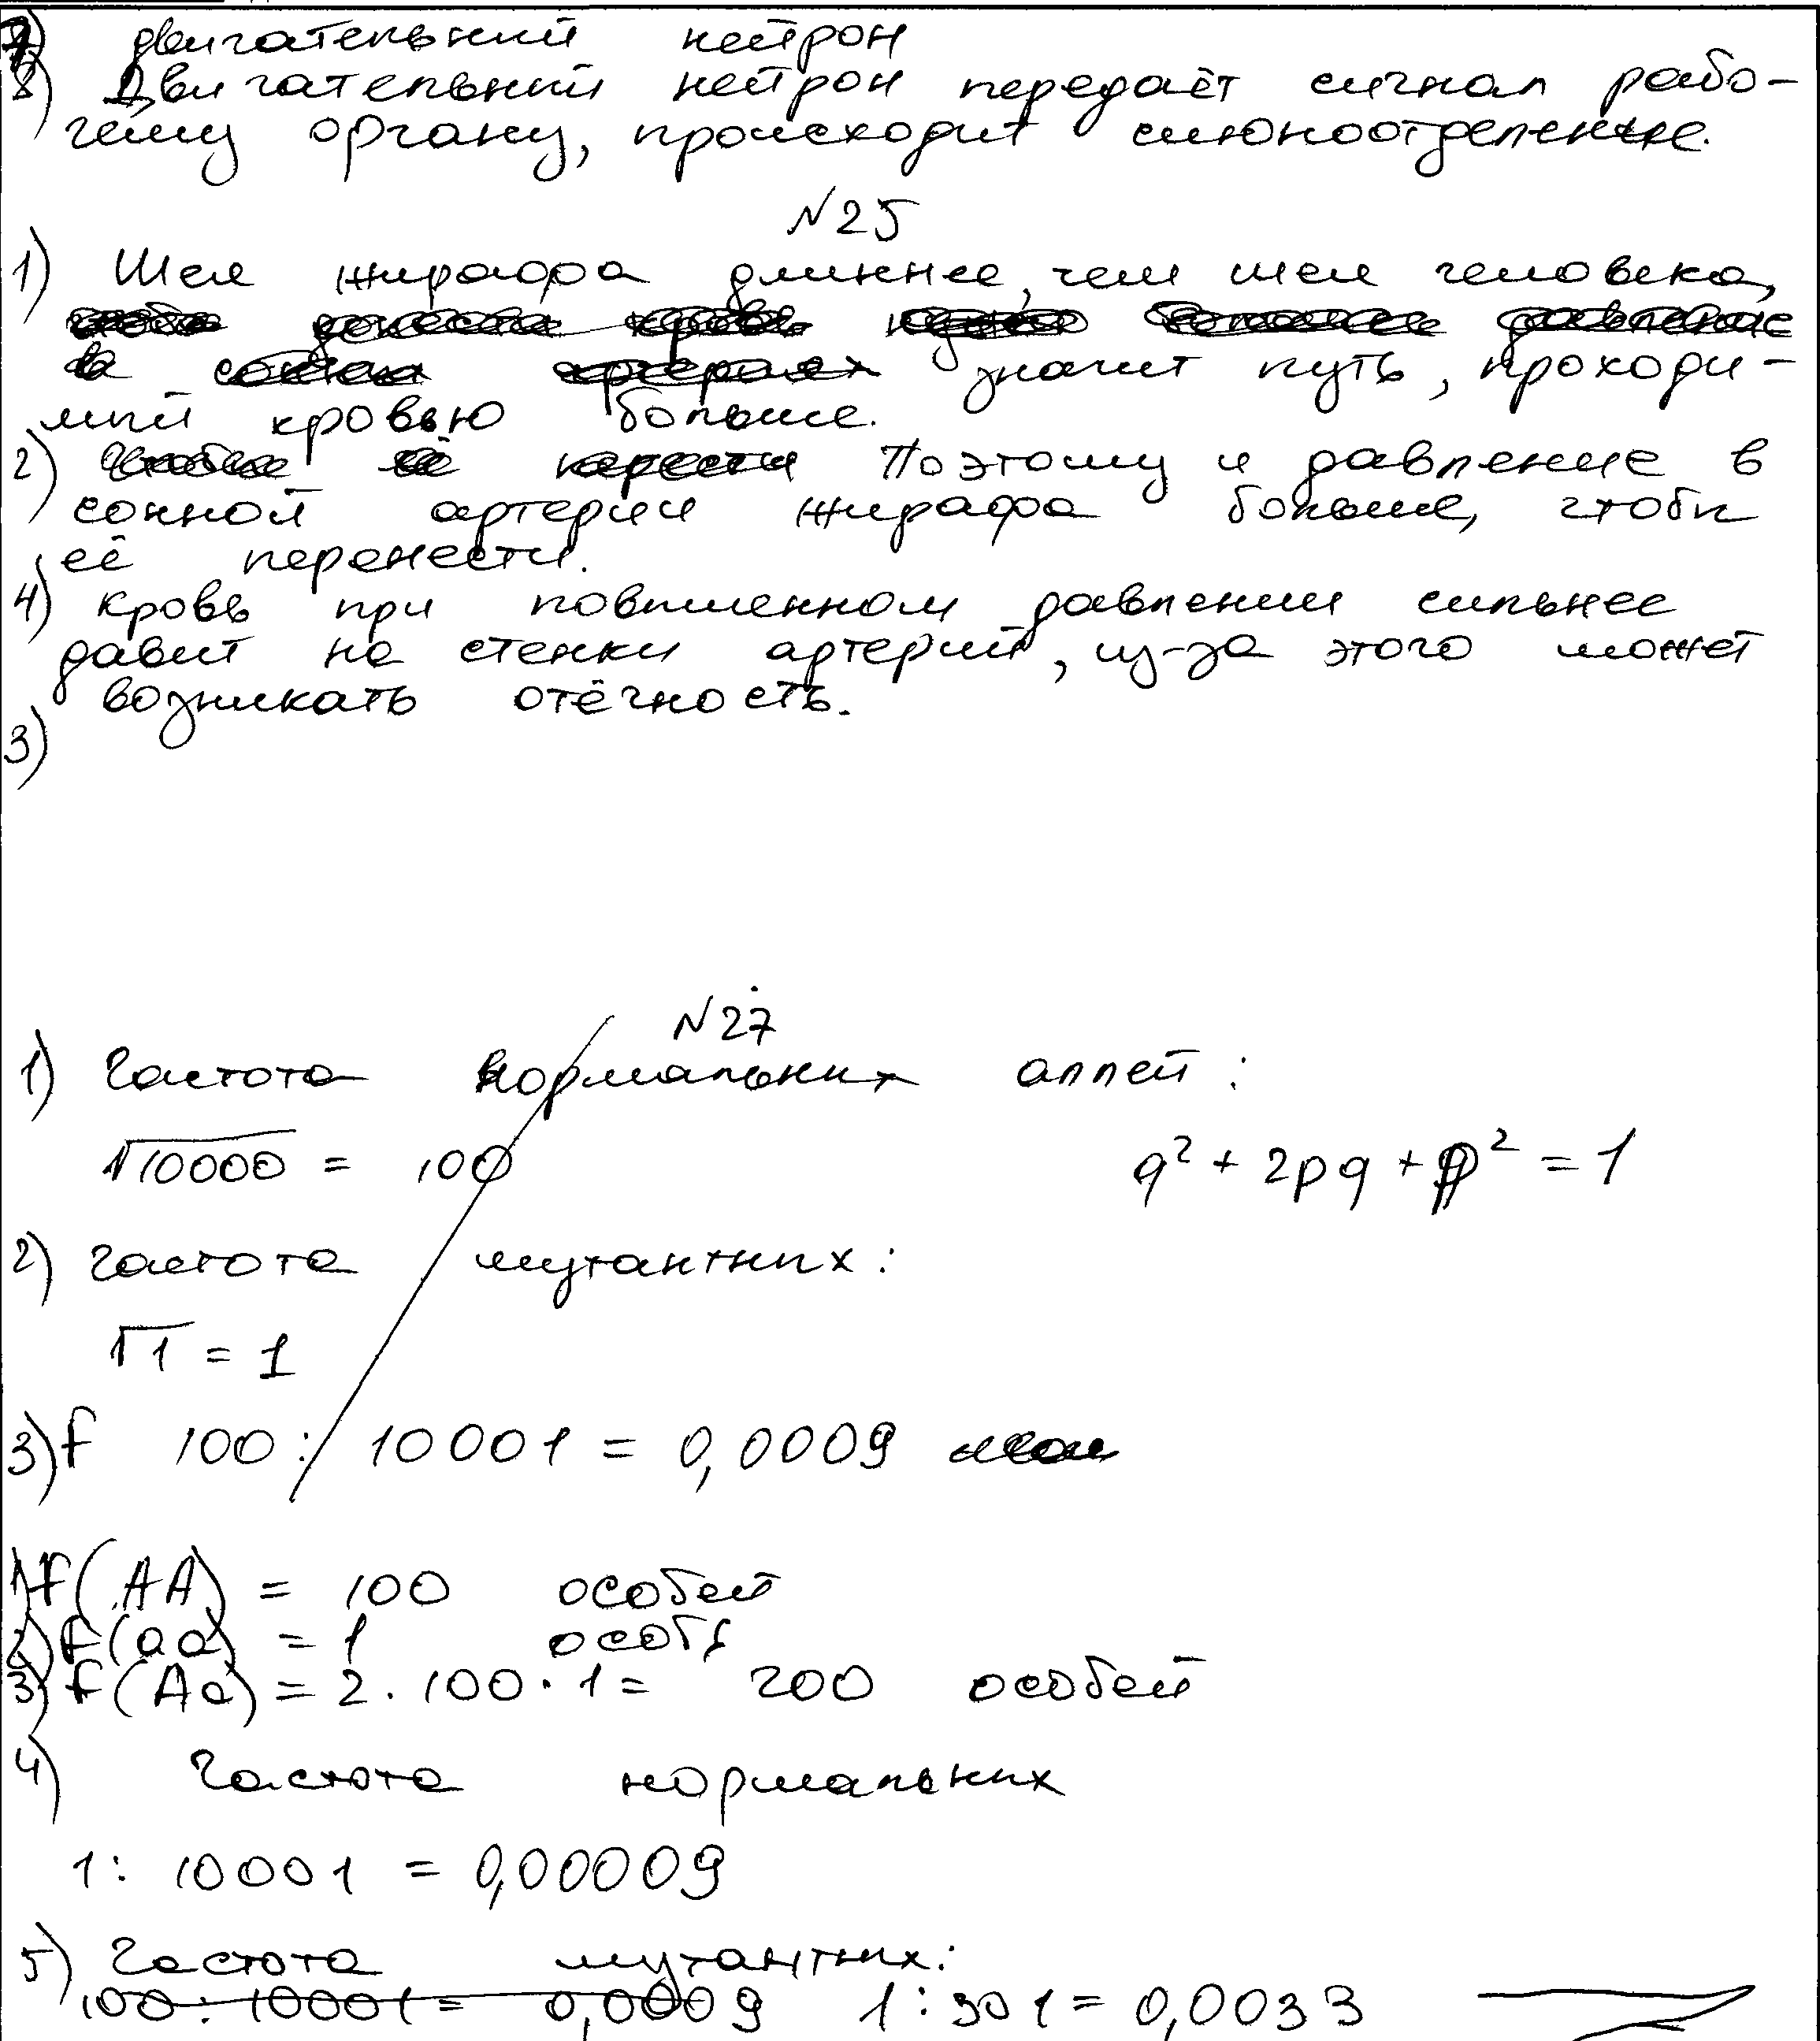 7) двигательный нейрон
8) Двигательный нейрон передаёт сигнал рабо-
чему органу, происходит слюноотделение.
№25
1) Шея жирафа длиннее, чем шея человека,
значит путь, проходи-
мый кровью больше.
2) Поэтому и давление в
сонной артерии жирафа больше, чтобы
её перенести.
4) кровь при повышенном давлении сильнее
давит на стенки артерий, из-за этого может
возникать отёчность.
3)
№27
1) Частота нормальных аллей:
√10000 = 100
q² + 2pq + p² = 1
2) частота мутантных:
√1 = 1
3) f 100 : 10001 = 0,0009
1) f(AA) = 100 особей
2) f(aa) = 1 особь
3) f(Aa) = 2 · 100 · 1 = 200 особей
4) Частота нормальных
1 : 10001 = 0,00009
5) Частота мутантных:
100 : 10001 = 0,0009 1 : 301 = 0,0033